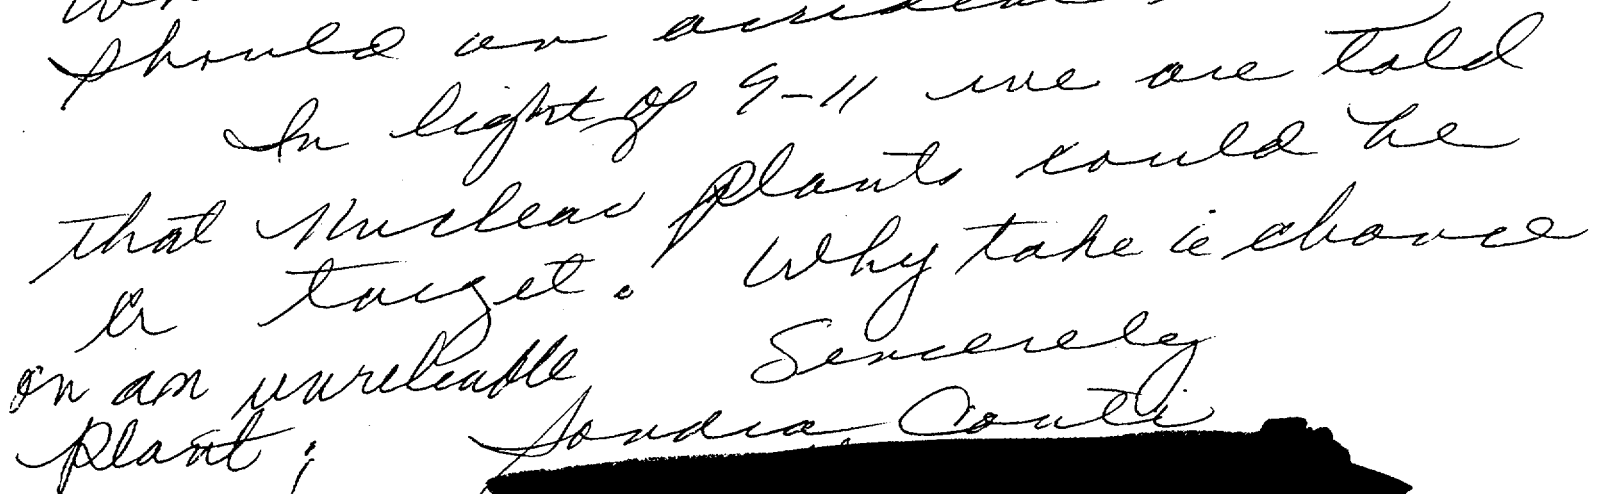 should an accident
In light of 9-11 we are told
that Nuclear plants could be
a target. Why take a chance
on an unreliable
plant;
Sincerely
Sandra Conti